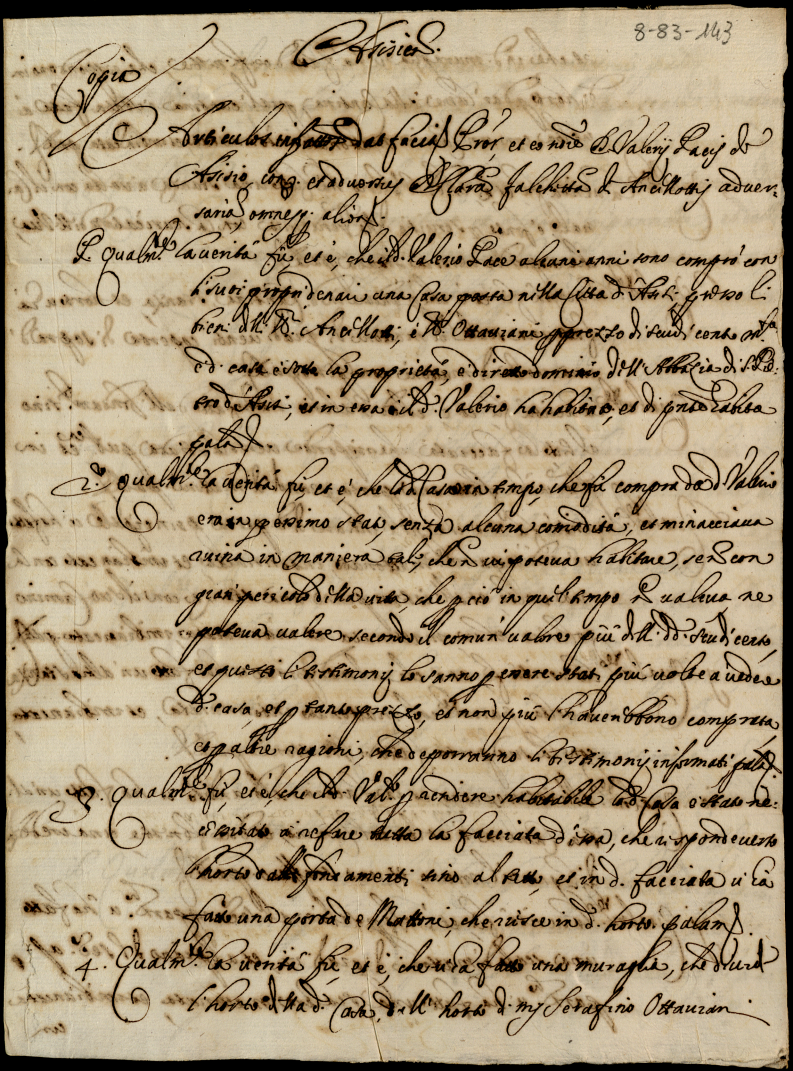 8-83-143
Asisien.
Copia
Articulos infrascr dat facit Pror, et eo noie D. Valerij Pacis de
Asisio, con. et adversus D. Clara Falchetta d. Ancillottis adver-
saria, omnesq. alios.
P. Qualm.te la verità fù, et è, che il d. Valerio Pace alcuni anni sono comprò con
li suoi proprij denari una Casa posta nella Città d'Asisi presso li
beni delli HH. Ancillotti, e HH. Ottaviani p prezzo di scudi cento m.ta
e d. casa è sotto la proprietà, e diretto dominio dell'Abbazia di S. Pie-
tro d'Asisi, et in essa il d. Valerio ha habitato, et di pnte habita
palam.
2.° Qualm.te la verità fù, et è, che la d. Casa in tempo, che fù compra da d. Valerio
era in pessimo stato, senza alcuna comodità, et minacciava
ruina in maniera tale, che n vi poteva habitare, se n con
gran pericolo della vita, che p ciò in quel tempo n valeva ne
poteva valere secondo il comun valore più delli dd. scudi cento
et questo li testimonij lo sanno p essere stati più volte a vedere
d. casa, et p tanto prezzo, et non più l'haverebbono comprata
et p altre ragioni, che deporranno li testimonij informati palam.
3. Qualm.te fù, et è, che il d. Val.° p rendere habitabile la d. Casa è stato ne-
cessitato a refare tutta la facciata d'essa, che risponde verso
l'horto dalli fondamenti sino al tetto, et in d. facciata vi ha
fatto una porta de Mattoni, che riesce in d. horto palam.
4. Qualm.te la verità fù, et è, che vi ha fatto una muraglia, che divide
l'horto della d. Casa, dall'horto di ms Serafino Ottaviani